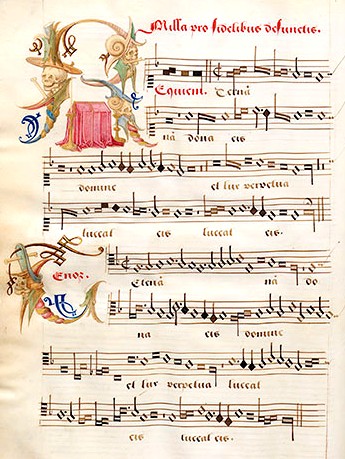 Missa pro fidelibus defunctis.
Requiem. Eternā
nā dona eis
domine et lux perpetua
luceat eis luceat eis.
Tenor.
Eternā nā do
na eis domine
et lux perpetua luceat
eis luceat eis.